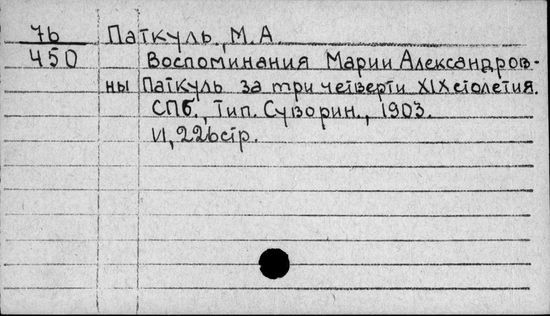 76 Паткуль, М. А.
450 Воспоминания Марии Александров-
ны Паткуль за три четверти XIX столетия.
СПб., Тип. Суворин., 1903.
II, 226 стр.